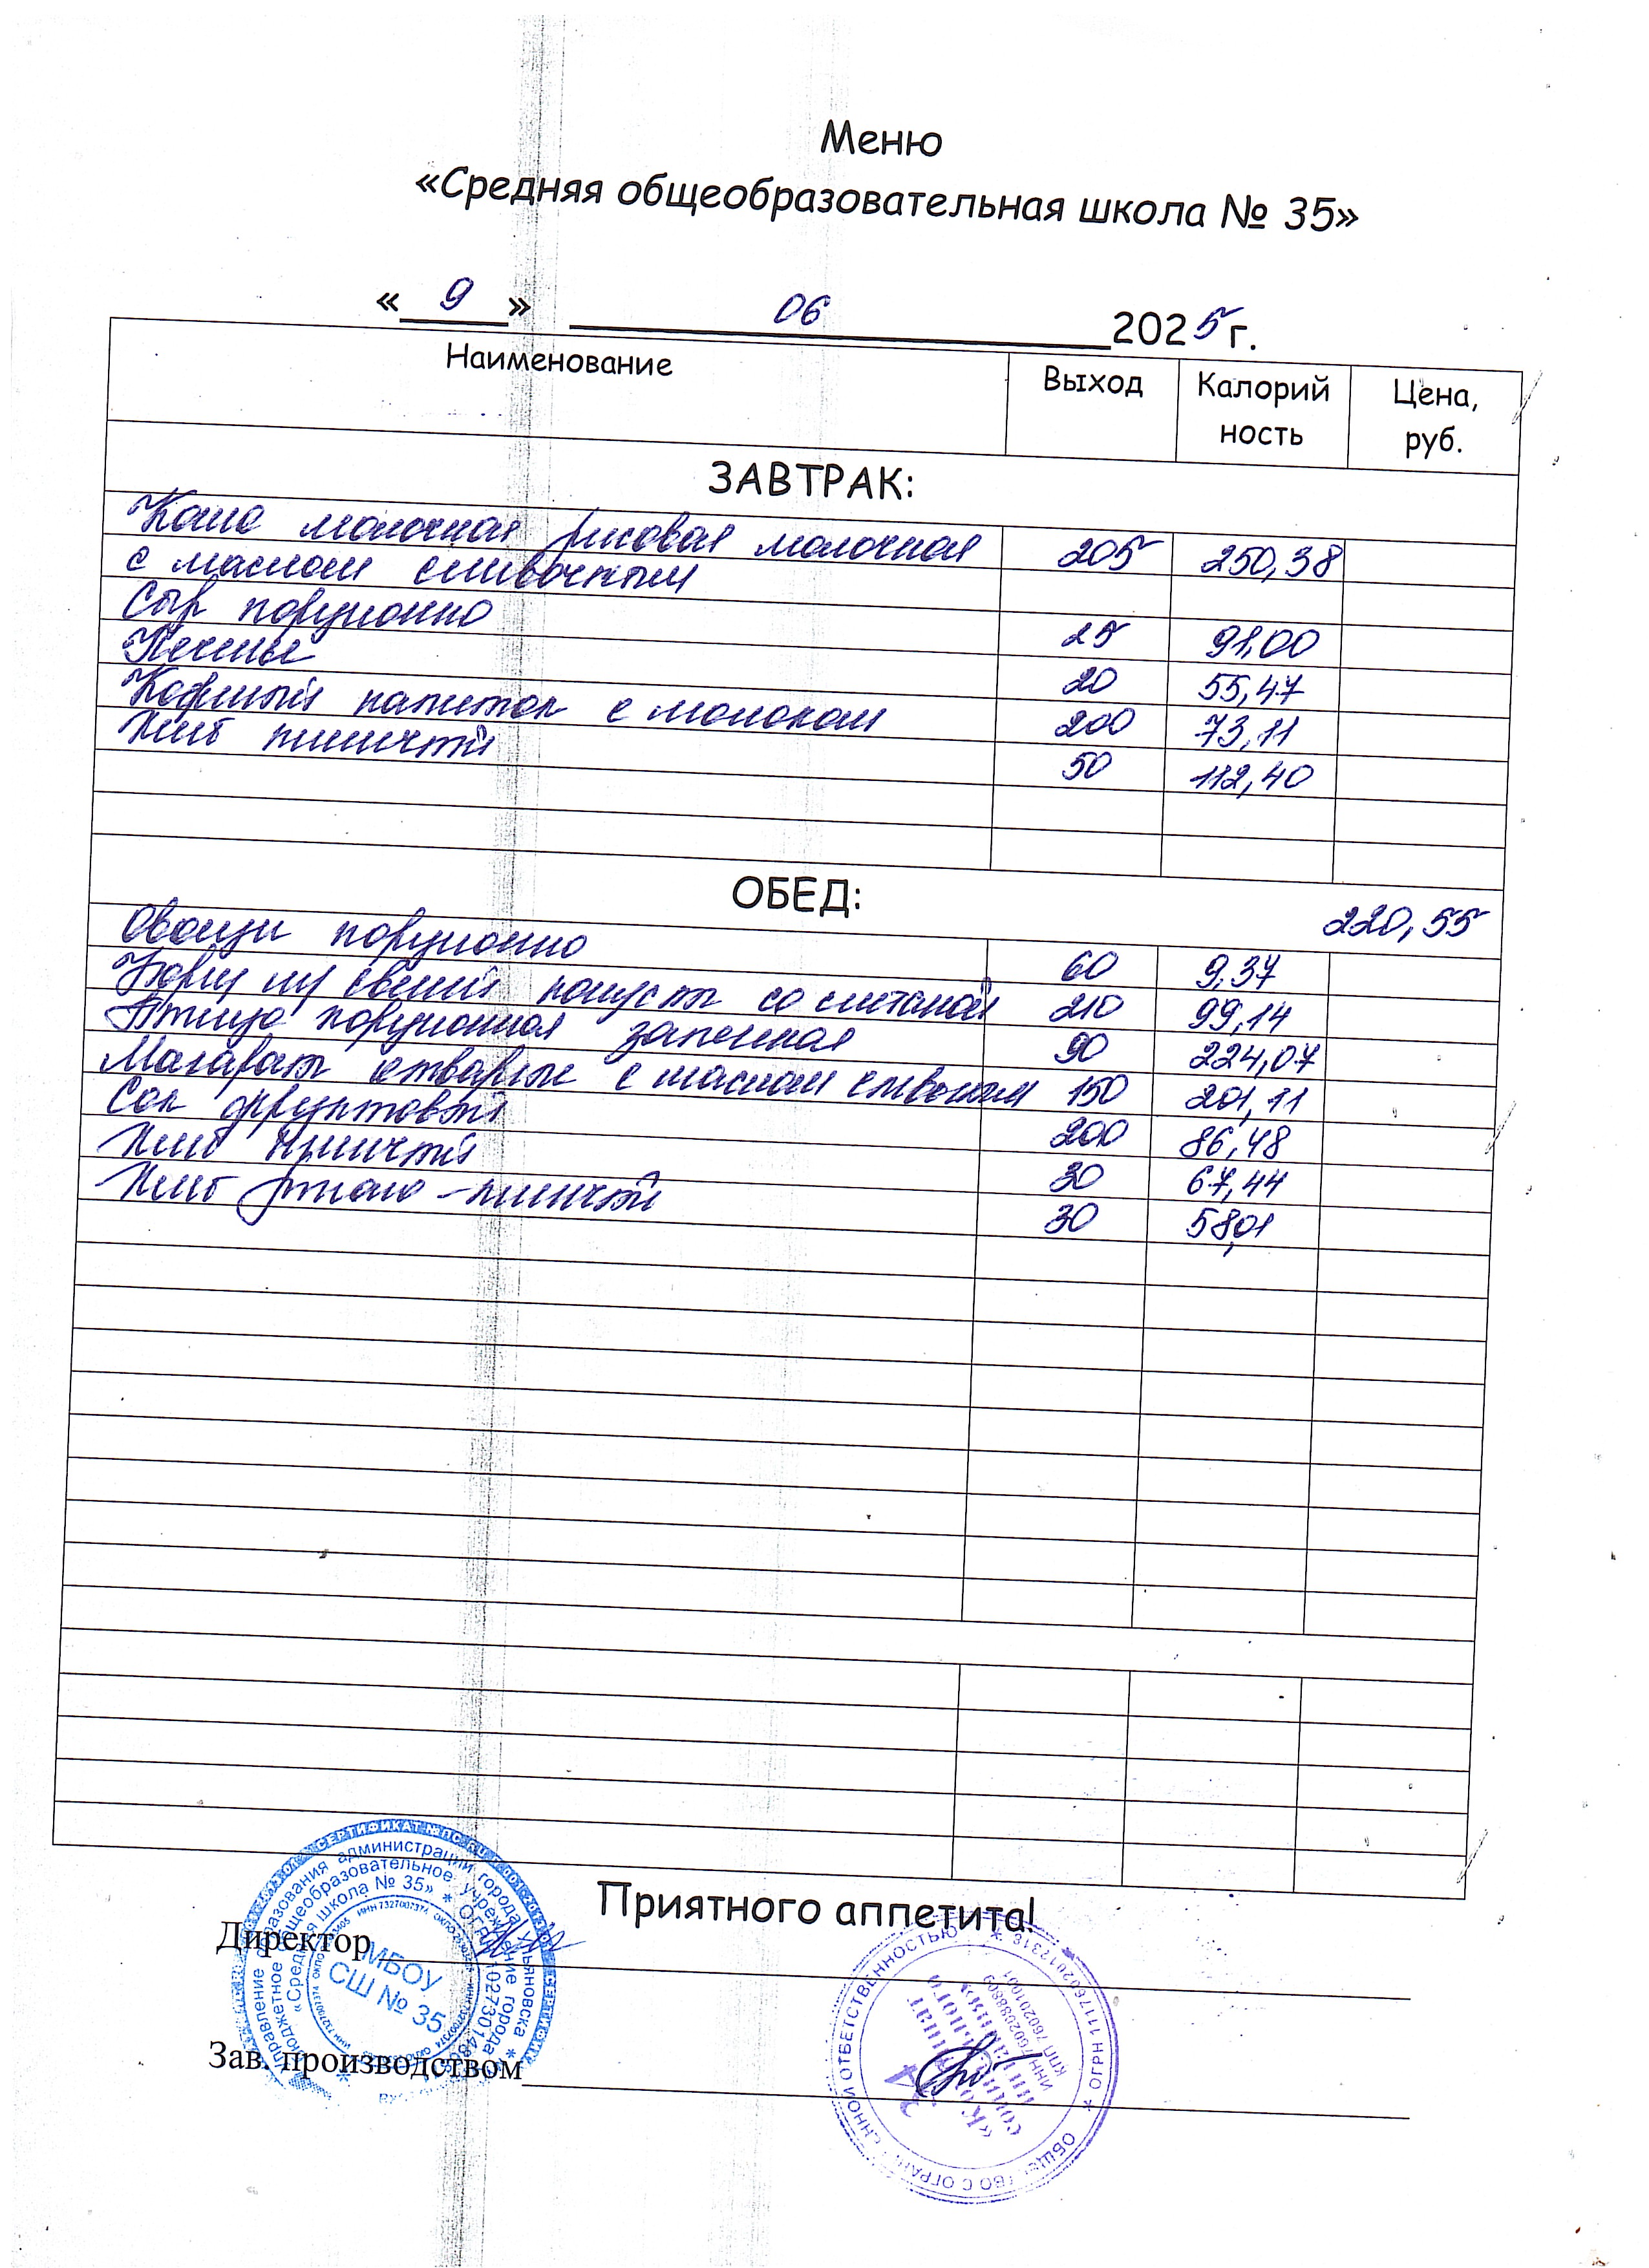 Меню
«Средняя общеобразовательная школа № 35»
« 9 » 06 2025 г.
Наименование Выход Калорий Цена,
ность руб.
ЗАВТРАК:
Каша молочная рисовая молочная 205 250,38
с маслом сливочным
Сыр порционно 25 91,00
Печенье 20 55,47
Кофейный напиток с молоком 200 73,11
Хлеб пшеничный 50 112,40
ОБЕД: 220,55
Овощи порционно 60 9,37
Борщ из свежей капусты со сметаной 210 99,14
Птица порционная запеченная 90 224,07
Макароны отварные с маслом сливочным 150 201,11
Сок фруктовый 200 86,48
Хлеб пшеничный 30 67,44
Хлеб ржано-пшеничный 30 58,01
Приятного аппетита!
Директор
МБОУ
СШ № 35
Зав. производством